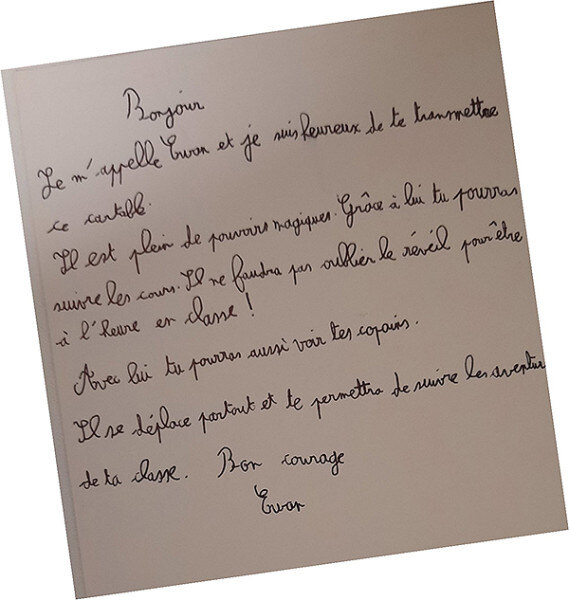 Bonjour
Je m'appelle Ewan et je suis heureux de te transmettre
ce cartable.
Il est plein de pouvoirs magiques. Grâce à lui tu pourras
suivre les cours. Il ne faudra pas oublier le réveil pour être
à l'heure en classe !
Avec lui tu pourras aussi voir tes copains.
Il se déplace partout et te permettra de suivre les aventur
de ta classe. Bon courage
Ewan